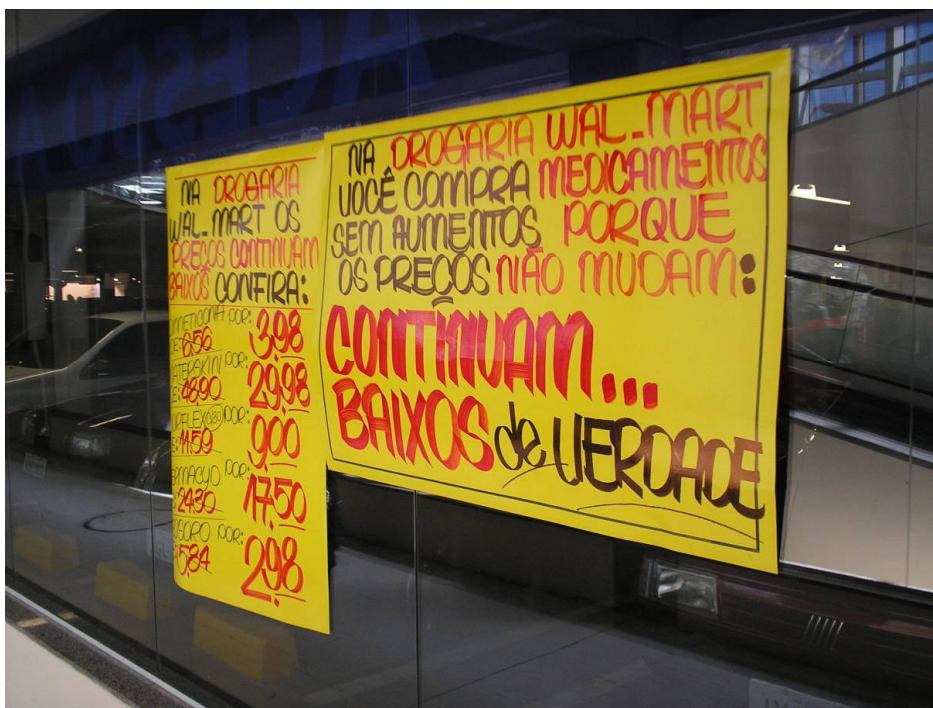 NA DROGARIA
WAL-MART OS
PREÇOS CONTINUAM
BAIXOS CONFIRA:
POR: 3,98
6,56
POR: 29,98
48,90
POR: 9,00
11,50
POR: 17,50
24,30
POR: 2,98
5,84
NA DROGARIA WAL-MART
VOCÊ COMPRA MEDICAMENTOS
SEM AUMENTOS PORQUE
OS PREÇOS NÃO MUDAM:
CONTINUAM...
BAIXOS de VERDADE